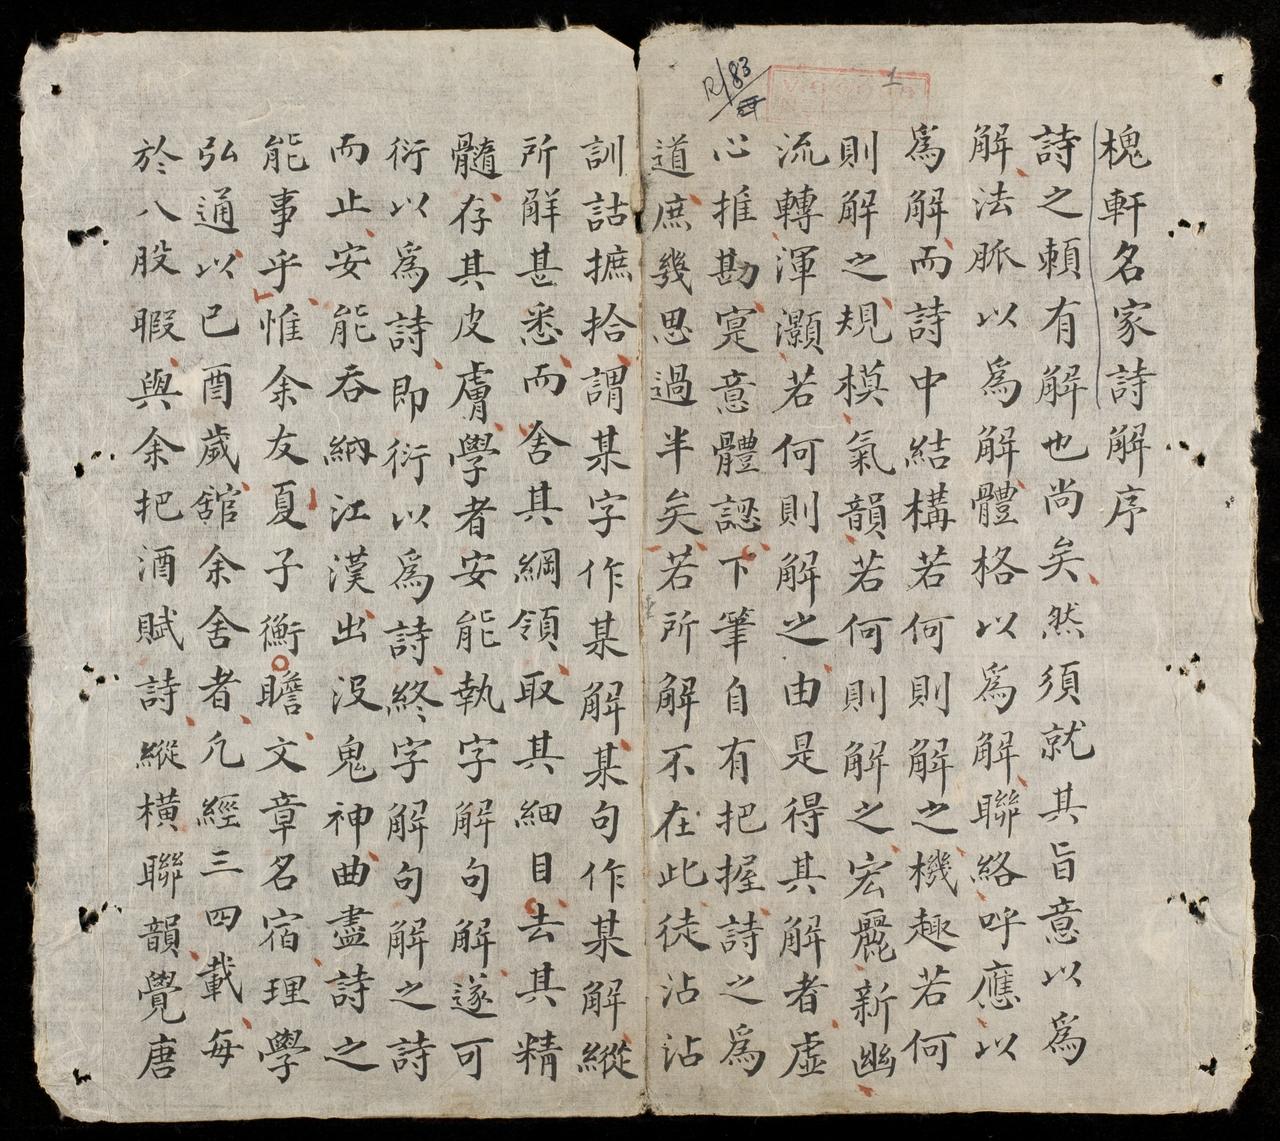 R/83
1
槐軒名家詩解序
詩之賴有解也尚矣然須就其旨意以爲
解法脈以爲解體格以爲解聯絡呼應以
爲解而詩中結構若何則解之機趣若何
則解之規模氣韻若何則解之宏麗新幽
流轉渾灝若何則解之由是得其解者虛
心推勘寔意體認下筆自有把握詩之爲
道庶幾思過半矣若所解不在此徒沾沾
訓詁摭拾謂某字作某解某句作某解縱
所解甚悉而舍其綱領取其細目去其精
髓存其皮膚學者安能執字解句解遂可
衍以爲詩即衍以爲詩終字解句解之詩
而止安能吞納江漢出沒鬼神曲盡詩之
能事乎惟余友夏子衡瞻文章名宿理學
弘通以已酉歲舘余舍者凡經三四載每
於八股暇與余把酒賦詩縱橫聯韻覺唐